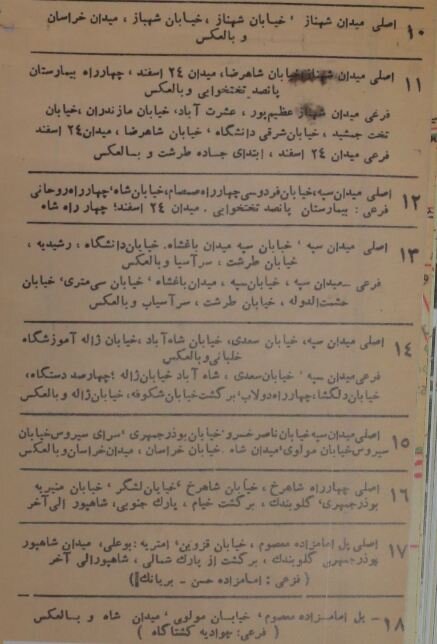 ۱۰ اصلی میدان شهناز ، خیابان شهناز ، خیابان شهباز ، میدان خراسان
و بالعکس
۱۱ اصلی میدان شهناز، خیابان شاهرضا، میدان ۲۴ اسفند ، چهارراه بیمارستان
پانصد تختخوابی و بالعکس
فرعی میدان شهناز عظیم‌پور ، عشرت آباد، خیابان مازندران ،خیابان
تخت جمشید ، خیابان شرقی دانشگاه ، خیابان شاهرضا ، میدان ۲۴ اسفند
فرعی میدان ۲۴ اسفند ، ابتدای جاده طرشت و بالعکس
۱۲ اصلی میدان سپه،خیابان فردوسی،چهارراه صمصام،خیابان شاه،چهارراه روحانی
فرعی : بیمارستان پانصد تختخوابی . میدان ۲۴ اسفند؛ چهار راه شاه
۱۳ اصلی میدان سپه ، خیابان سپه میدان باغشاه. خیابان دانشگاه ، رشیدیه ،
خیابان طرشت ، سرآسیا و بالعکس
فرعی – میدان سپه ، خیابان سپه ، میدان باغشاه ، خیابان سی‌متری، خیابان
حشمت‌الدوله ، خیابان طرشت ، سرآسیاب و بالعکس
۱۴ اصلی میدان سپه، خیابان سعدی، خیابان شاه‌آباد ،خیابان ژاله آموزشگاه
خلبانی و بالعکس
فرعی میدان سپه ، خیابان سعدی ، شاه آباد خیابان ژاله ؛ چهارصد دستگاه،
خیابان دلگشا،چهارراه دولاب،برگشت خیابان شکوفه، خیابان ژاله و بالعکس
۱۵ اصلی میدان سپه خیابان ناصر خسرو، خیابان بوذرجمهری ، سرای سیروس خیابان
سیروس خیابان مولوی، میدان شاه . خیابان خراسان ، میدان خراسان و بالعکس
۱۶ اصلی چهارراه شاهرخ ، خیابان شاهرخ ، خیابان لشگر ، خیابان منیریه
بوذرجمهری، گلوبندك ، برگشت خیام ، پارك جنوبی، شاهپور الی آخر
۱۷ اصلی پل امامزاده معصوم ، خیابان قزوین، امیریه : بوعلی، میدان شاهپور
بوذرجمهری گلوبندك ، برگشت از پارك شمالی ، شاهپور الی آخر
( فرعی : امامزاده حسن - بریانك )
۱۸ - پل امامزاده معصوم، خیابان مولوی، میدان شاه و بالعکس
( فرعی: جوادیه کشتارگاه )